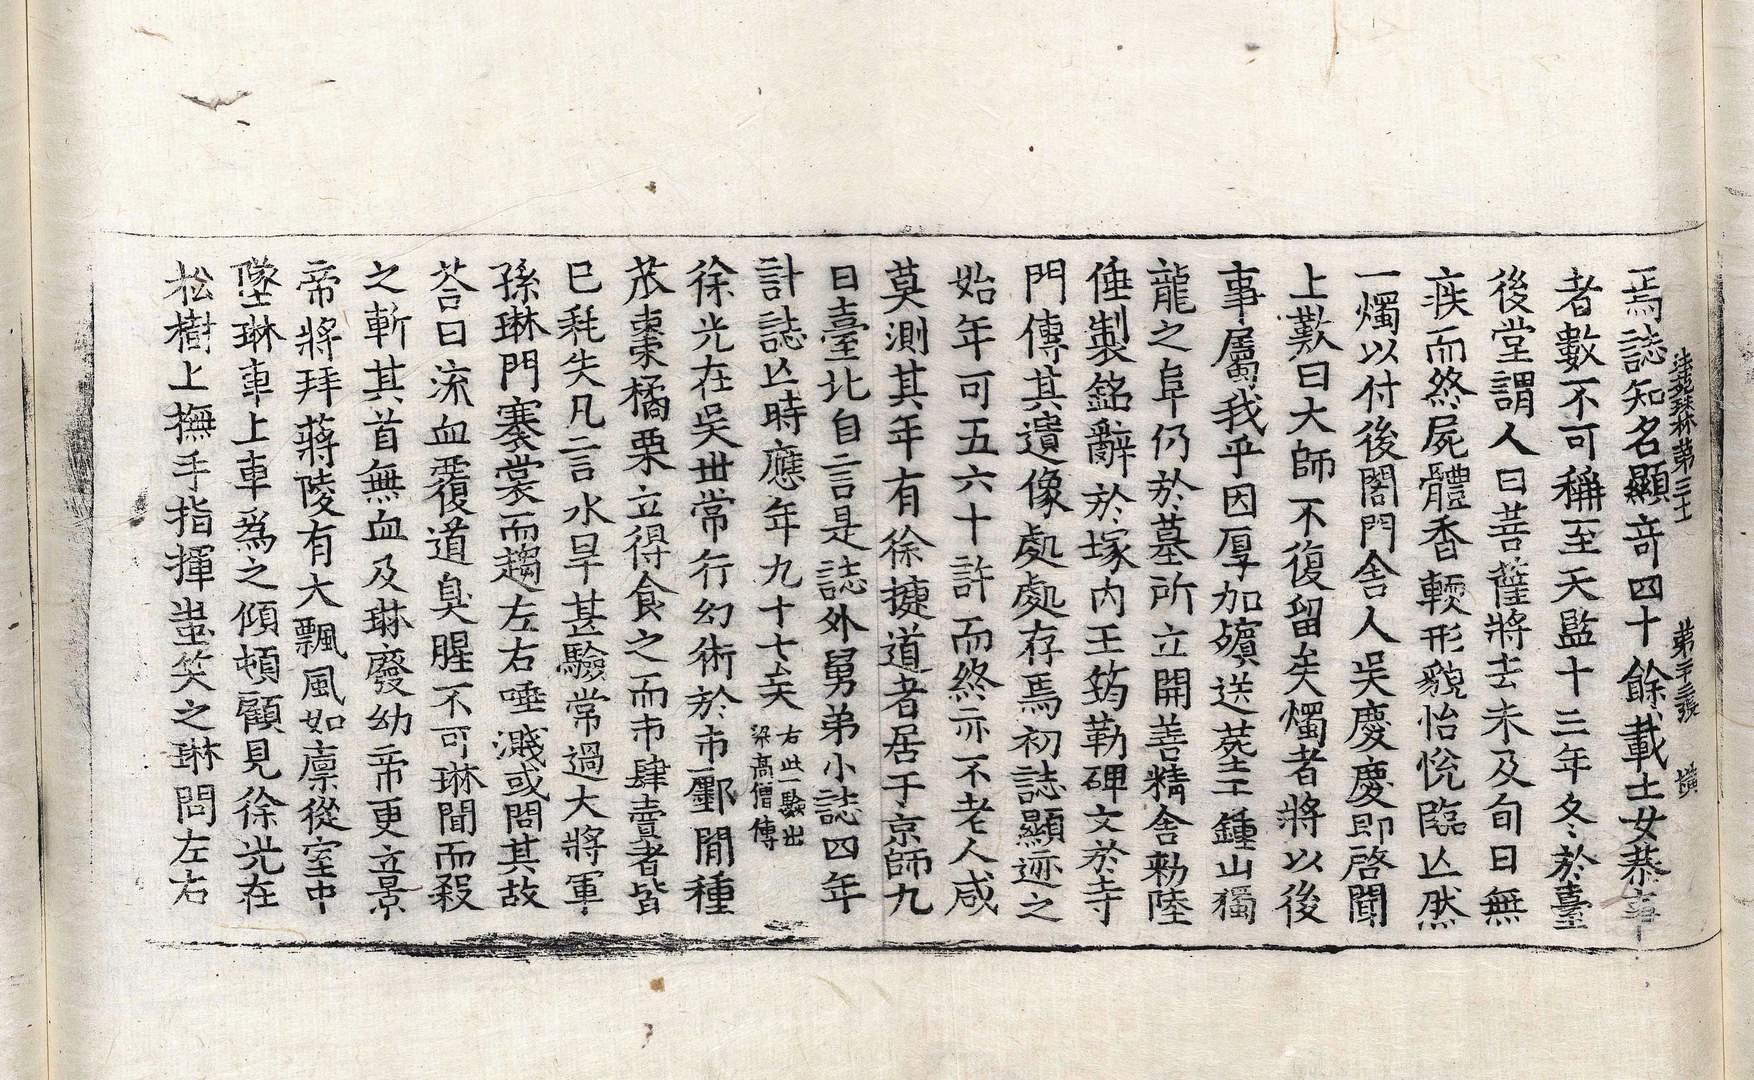 法苑珠林第三十一 第二十二張 橫
焉誌知名顯竒四十餘載士女恭事
者數不可稱至天監十三年冬於臺
後堂謂人曰菩薩將去未及旬日無
疾而終屍體香輭形貌怡悅臨亾然
一燭以付後閤門舍人吳慶慶即啓聞
上歎曰大師不復留矣燭者將以後
事屬我乎因厚加殯送葬于鍾山獨
龍之阜仍於墓所立開善精舍勑陸
倕製銘辭於塚內王筠勒碑文於寺
門傳其遺像處處存焉初誌顯迹之
始年可五六十許而終亦不老人咸
莫測其年有徐捷道者居于京師九
日臺北自言是誌外舅弟小誌四年
計誌亾時應年九十七矣 右此一驗出梁高僧傳
徐光在吳世常行幻術於市鄽閒種
苽棗橘栗立得食之而市肆賣者皆
已耗失凡言水旱甚驗常過大將軍
孫琳門褰裳而趨左右唾濺或問其故
荅曰流血覆道臭腥不可琳聞而殺
之斬其首無血及琳廢幼帝更立景
帝將拜蔣陵有大飄風如廩從室中
墜琳車上車為之傾頓顧見徐光在
松樹上撫手指揮蚩笑之琳問左右